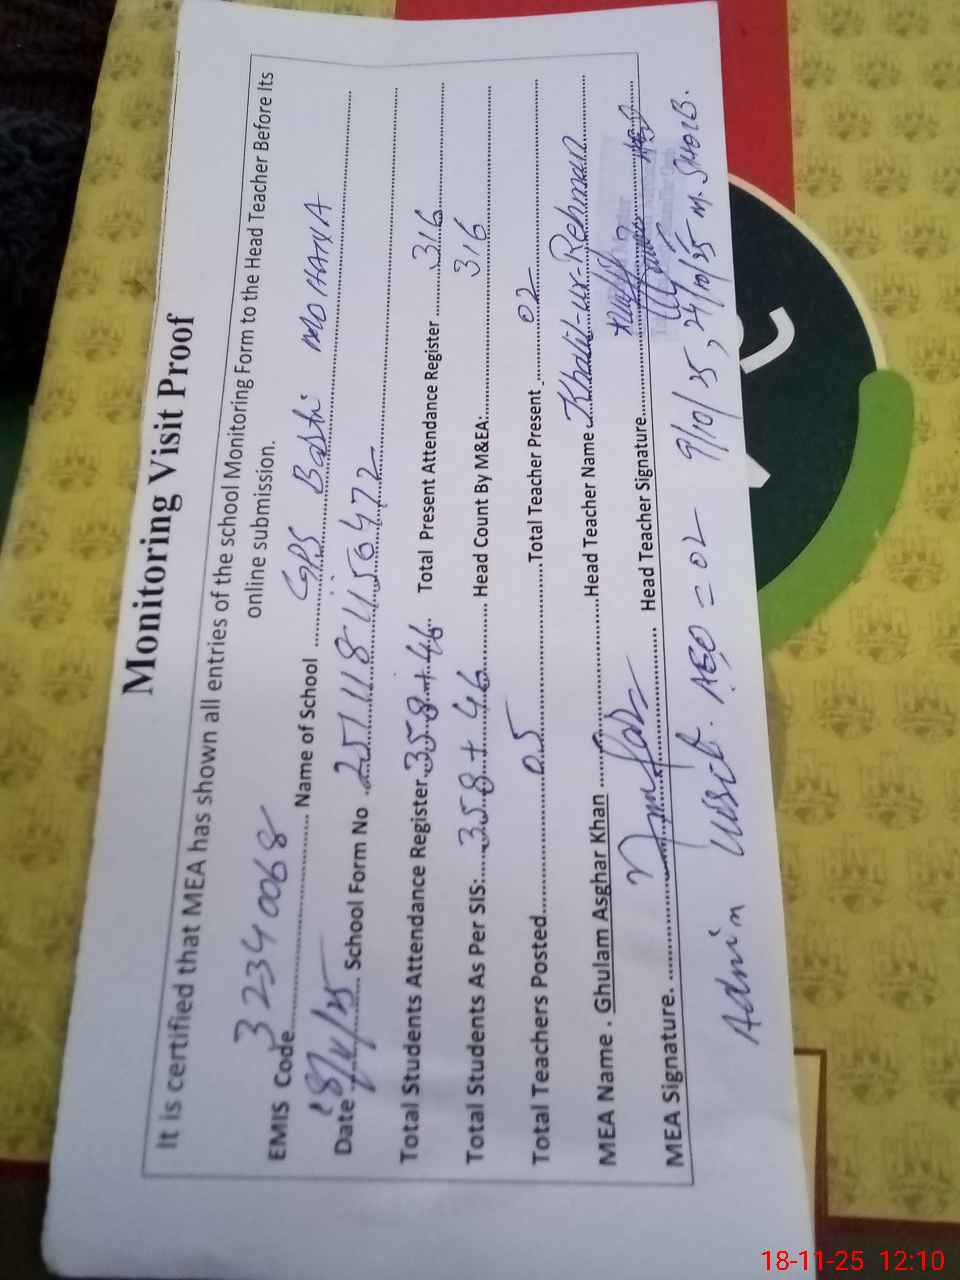 Monitoring Visit Proof
It is certified that MEA has shown all entries of the school Monitoring Form to the Head Teacher Before Its
online submission.
EMIS Code 32340068 Name of School GPS Basti MOHANA
Date 18/11/25 School Form No 2511181156472
Total Students Attendance Register 358+46 Total Present Attendance Register 316
Total Students As Per SIS: 358+46 Head Count By M&EA: 316
Total Teachers Posted 05 Total Teacher Present 02
MEA Name . Ghulam Asghar Khan Head Teacher Name Khalil-ur-Rehman
MEA Signature. Head Teacher Signature
Admin Visit. AEO = 02 9/10/25, 24/10/25 M. SHOIB.
18-11-25 12:10